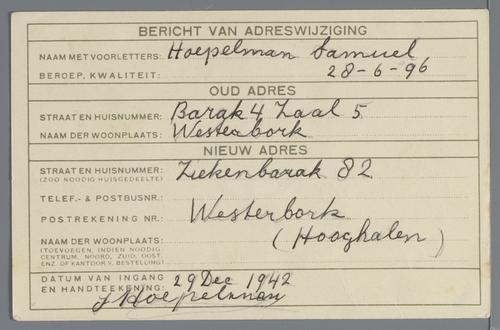 BERICHT VAN ADRESWIJZIGING
NAAM MET VOORLETTERS: Hoepelman Samuel
BEROEP, KWALITEIT: 28-6-96
OUD ADRES
STRAAT EN HUISNUMMER: Barak 4 Zaal 5
NAAM DER WOONPLAATS: Westerbork
NIEUW ADRES
STRAAT EN HUISNUMMER: Ziekenbarak 82
(ZOO NOODIG HUISGEDEELTE)
TELEF.- & POSTBUSNR.:
POSTREKENING NR.: Westerbork
NAAM DER WOONPLAATS: (Hooghalen)
(TOEVOEGEN, INDIEN NOODIG:
CENTRUM, NOORD, ZUID, OOST,
ENZ. OF KANTOOR V. BESTELLING)
DATUM VAN INGANG 29 Dec 1942
EN HANDTEEKENING: Hoepelman